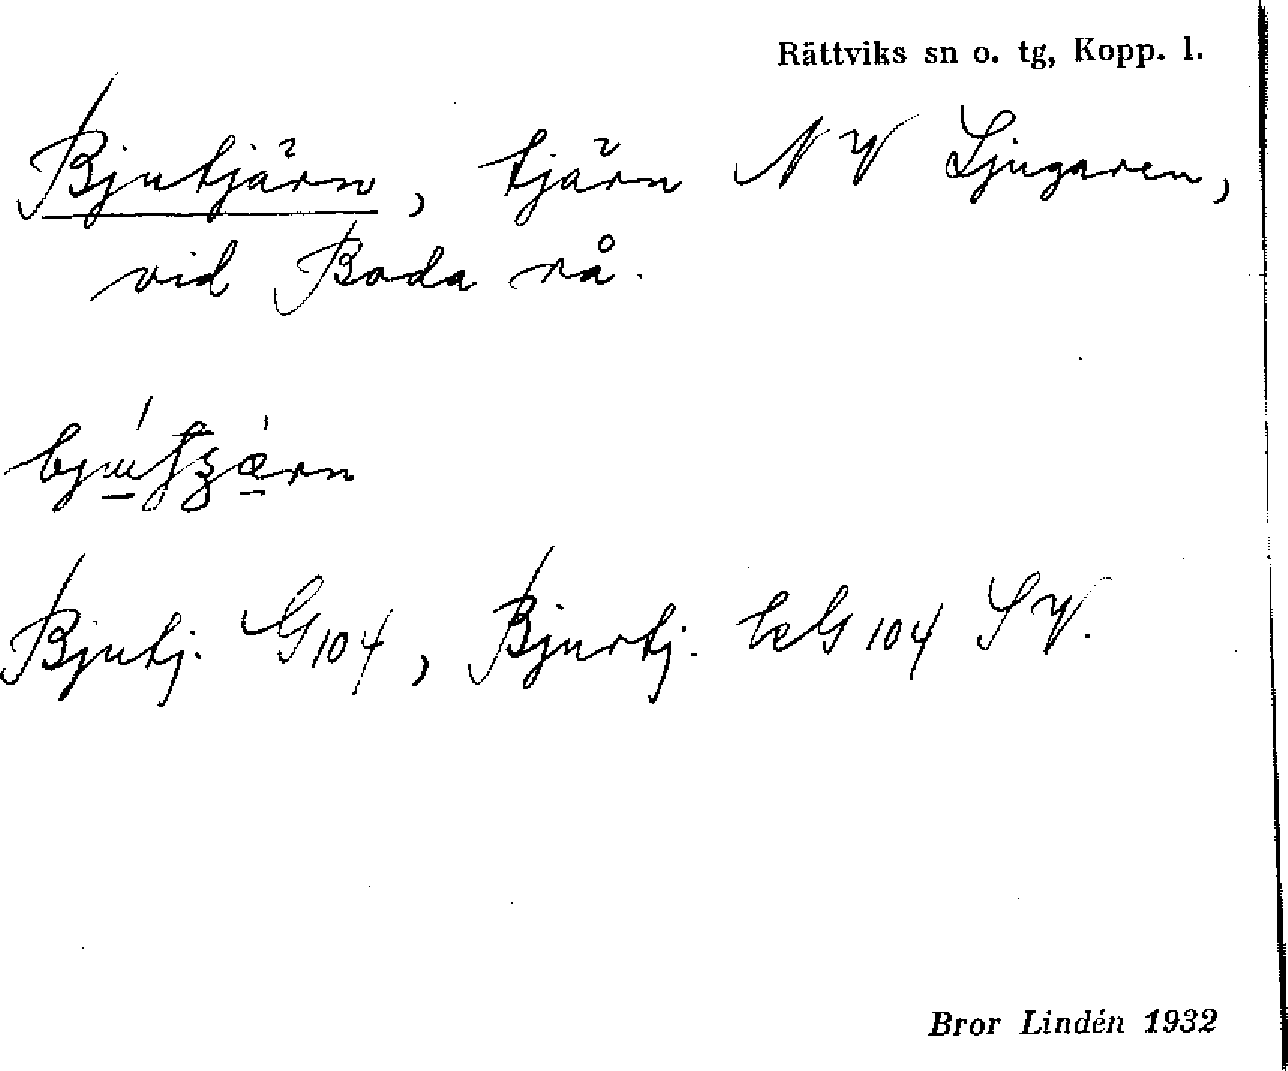 Rättviks sn o. tg, Kopp. l.
Bjutjärn, tjärn NV Ljugaren,
vid Boda rå.
Bjutj. G104, Bjurtj. kG104 SV.
Bror Lindén 1932